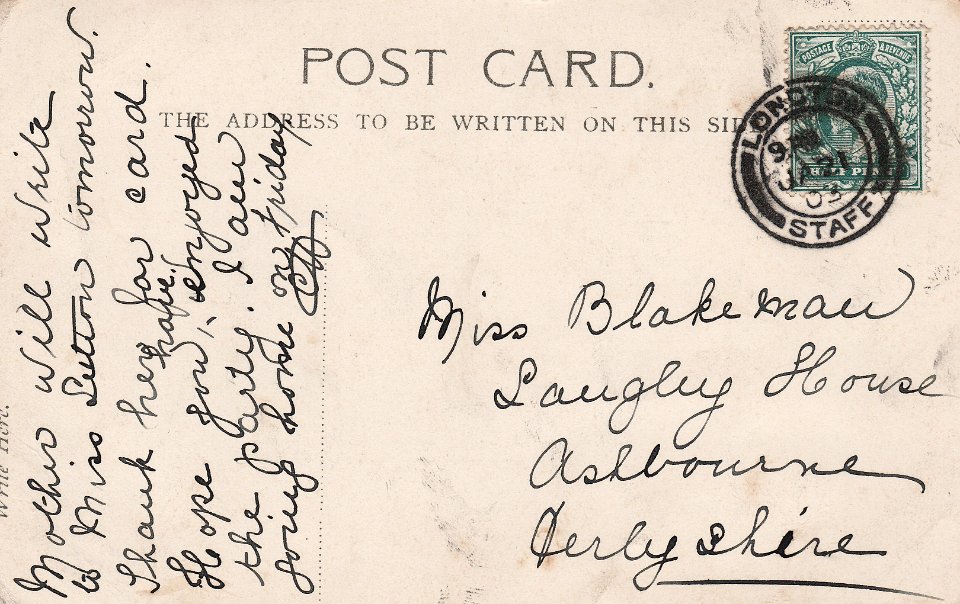 POST CARD.
THE ADDRESS TO BE WRITTEN ON THIS SID
POSTAGE & REVENUE
HALF PENNY
LONGTON
9 PM
JA 21
03
STAFF
Miss Blakeman
Langley House
Ashbourne
Derbyshire
Write Here.
Mother will write
to Miss Sutton tomorrow.
Thank her for card.
Hope you have enjoyed
the party. I am
going home on Friday